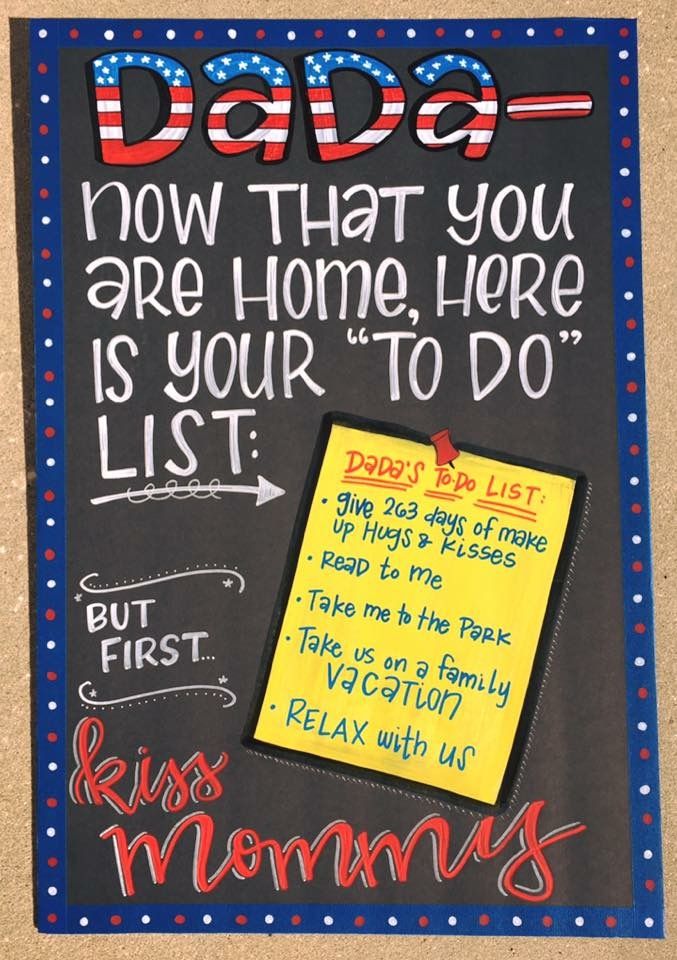 DaDa-
now THaT you
aRe Home, HeRe
is youR "To Do"
LIST:
DaDa's To-Do LIST:
• give 263 days of make
up Hugs & Kisses
• Read to me
• Take me to the Park
• Take us on a family
vacation
• RELAX with us
BUT
FIRST...
kiss
mommy